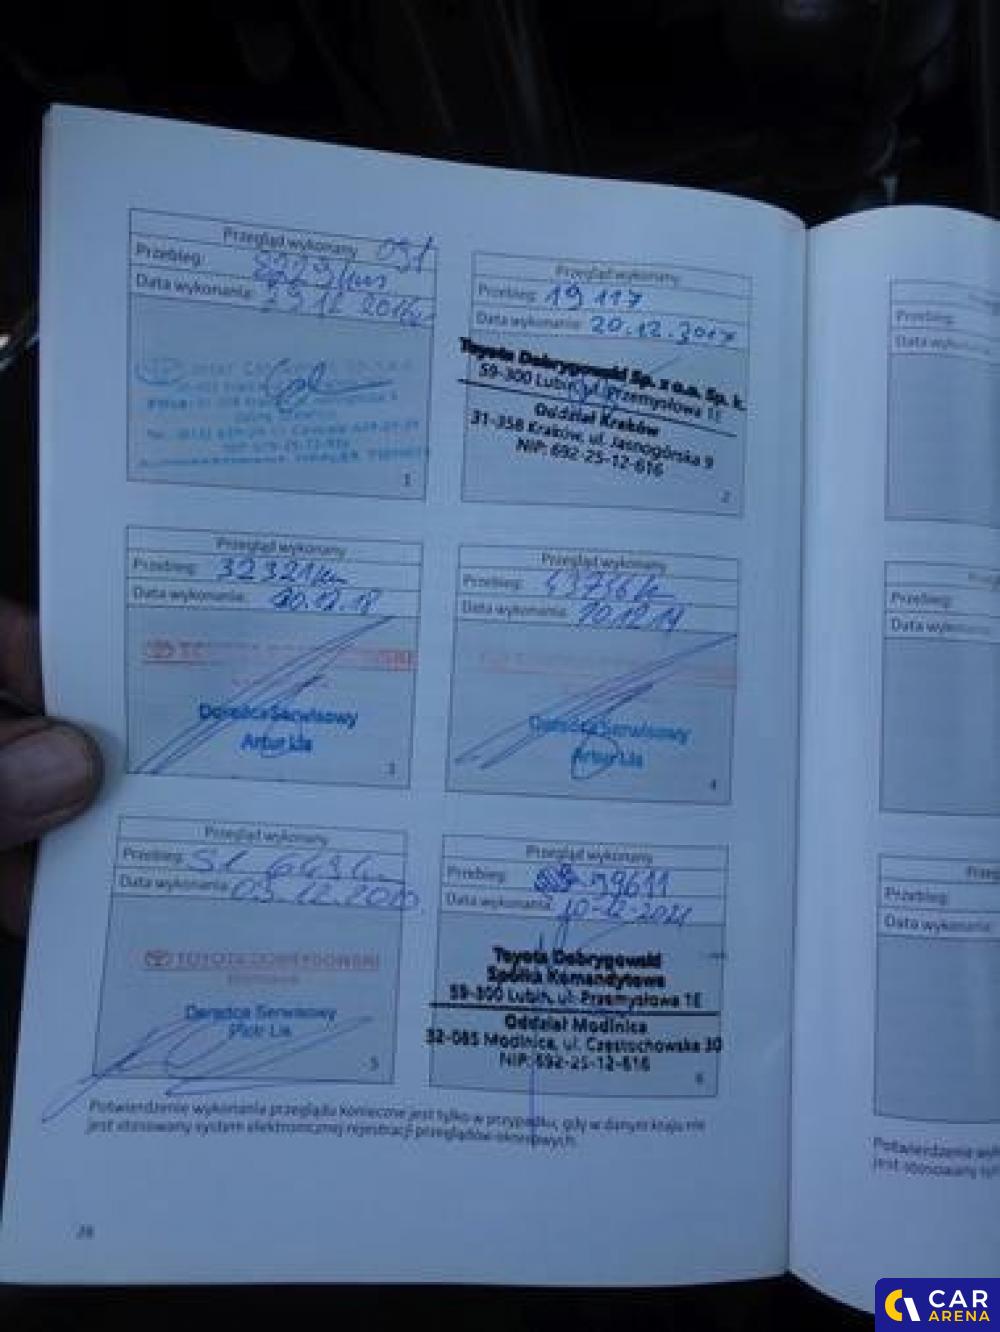 Przegląd wykonany 091
Przebieg: 8229 km
Data wykonania: 29 12 2016
1
Przegląd wykonany
Przebieg: 19 117
Data wykonania: 20.12.2017
Toyota Dobrygowski Sp. z o.o. Sp. k.
59-300 Lubin, ul. Przemysłowa 1E
Oddział Kraków
31-358 Kraków, ul. Jasnogórska 9
NIP: 692-25-12-616
2
Przegląd wykonany
Przebieg: 32321 km
Data wykonania: 20.12.18
Doradca Serwisowy
Artur Lis
3
Przegląd wykonany
Przebieg:
Data wykonania:
Doradca Serwisowy
Artur Lis
4
Przegląd wykonany
Przebieg:
Data wykonania: 03.12.2020
TOYOTA DOBRYGOWSKI
Doradca Serwisowy
Piotr Lis
5
Przegląd wykonany
Przebieg: 59611
Data wykonania: 10-12-2021
Toyota Dobrygowski
Spółka Komandytowa
59-300 Lubin, ul. Przemysłowa 1E
Oddział Modlnica
32-085 Modlnica, ul. Częstochowska 30
NIP: 692-25-12-616
6
Potwierdzenie wykonania przeglądu konieczne jest tylko w przypadku, gdy w danym kraju nie
jest stosowany system elektronicznej rejestracji przeglądów okresowych.
28
Przebieg:
Data wykonania:
Przebieg:
Data wykonania:
Przebieg:
Data wykonania:
CAR
ARENA